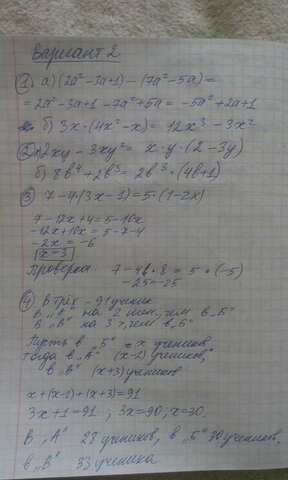 Вариант 2
① а) (2а² - 3а + 1) - (7а² - 5а) =
= 2а² - 3а + 1 - 7а² + 5а = -5а² + 2а + 1
б) 3х · (4х² - х) = 12х³ - 3х²
② 2ху - 3ху² = х · у · (2 - 3у)
б) 8b⁴ + 2b³ = 2b³ · (4b + 1)
③ 7 - 4 · (3х - 1) = 5 · (1 - 2х)
7 - 12х + 4 = 5 - 10х
-12х + 10х = 5 - 7 - 4
-2х = -6
х = 3
Проверка 7 - 4 · 8 = 5 · (-5)
-25 = -25
④ В трёх - 91 ученик
в "А" на 2 мен., чем в "Б"
в "В" на 3 >, чем в "Б"
Пусть в "Б" - х учеников
тогда в "А" (х-2) учеников,
в "В" (х+3) учеников
х + (х-2) + (х+3) = 91
3х + 1 = 91 ; 3х = 90 ; х = 30.
В "А" 28 учеников, в "Б" 30 учеников,
в "В" 33 ученика